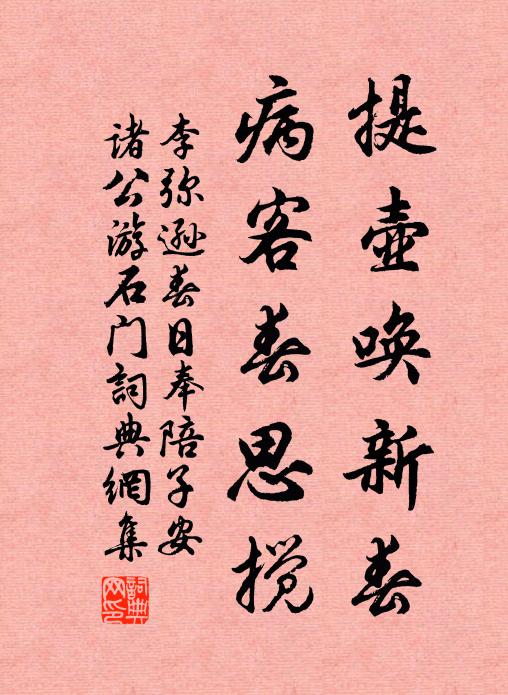 提壶唤新春
病客春思搅
李弥逊春日奉陪子安
诸公游石门詞典網集
詞典网印